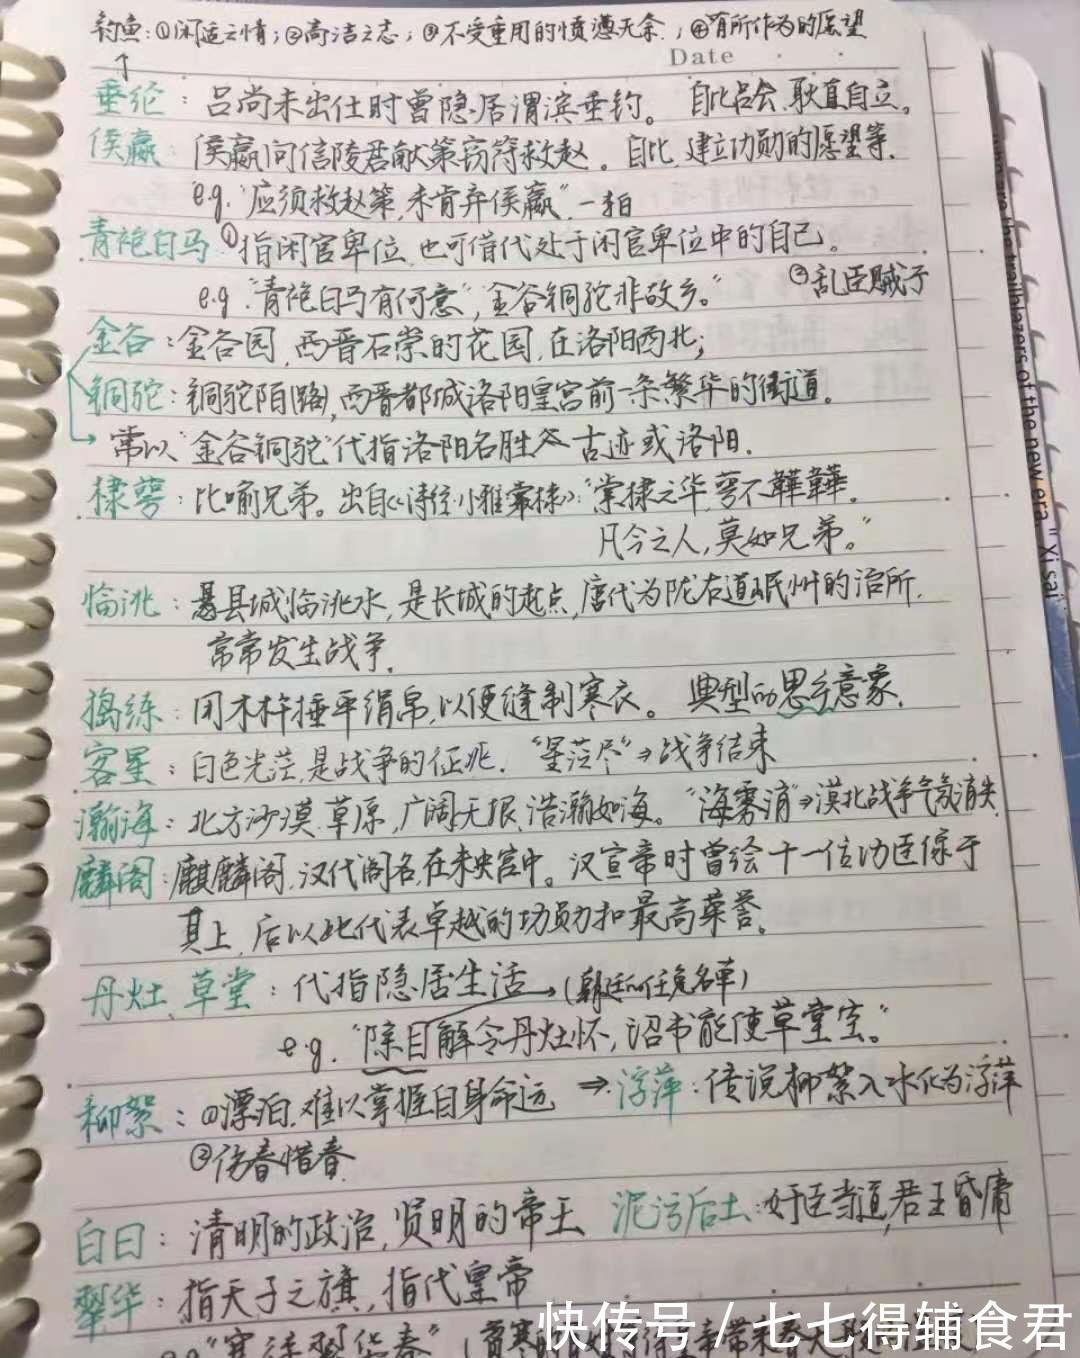 钓鱼：①闲适之情；②高洁之志；③不受重用的愤懑无奈；④有所作为的愿望
Date
垂纶：吕尚未出仕时曾隐居渭滨垂钓。 自比吕尚,耿直自立。
侯嬴：侯嬴向信陵君献策窃符救赵。自比,建立功勋的愿望等.
e.g."应须救赵策,未肯弃侯嬴".
青袍白马①指闲官卑位,也可借代处于闲官卑位中的自己。
②乱臣贼子
e.g."青袍白马有何意",金谷铜驼非故乡."
金谷：金谷园,西晋石崇的花园,在洛阳西北;
铜驼：铜驼陌(路),西晋都城洛阳皇宫前一条繁华的街道.
常以"金谷铜驼"代指洛阳名胜古迹或洛阳.
棣萼：比喻兄弟。出自《诗经·小雅·常棣》:"常棣之华,萼不韡韡.
凡今之人,莫如兄弟。"
临洮：县城临洮水,是长城的起点,唐代为陇右道岷州的治所.
常常发生战争.
捣练：用木杵捶平绢帛,以便缝制寒衣。 典型的思乡意象.
客星：白色光芒,是战争的征兆. "星芒尽"⇒战争结束
瀚海：北方沙漠.草原,广阔无限,浩瀚如海。"海雾消"⇒漠北战争气氛消失
麟阁：麒麟阁,汉代阁名,在未央宫中。汉宣帝时曾绘十一位功臣像于
其上,后以此代表卓越的功勋和最高荣誉.
丹灶、草堂：代指隐居生活→(朝廷的任免名单)
e.g."除目解令丹灶怀,诏书能使草堂空."
柳絮：①漂泊.难以掌握自身命运 ⇒浮萍：传说柳絮入水化为浮萍
②伤春惜春
白日：清明的政治,贤明的帝王 泥污后土:奸臣当道,君王昏庸
翠华：指天子之旗,指代皇帝
"寒待翠华春"
the trailblazers of the new era." Xi sai
快传号 / 七七得辅食君